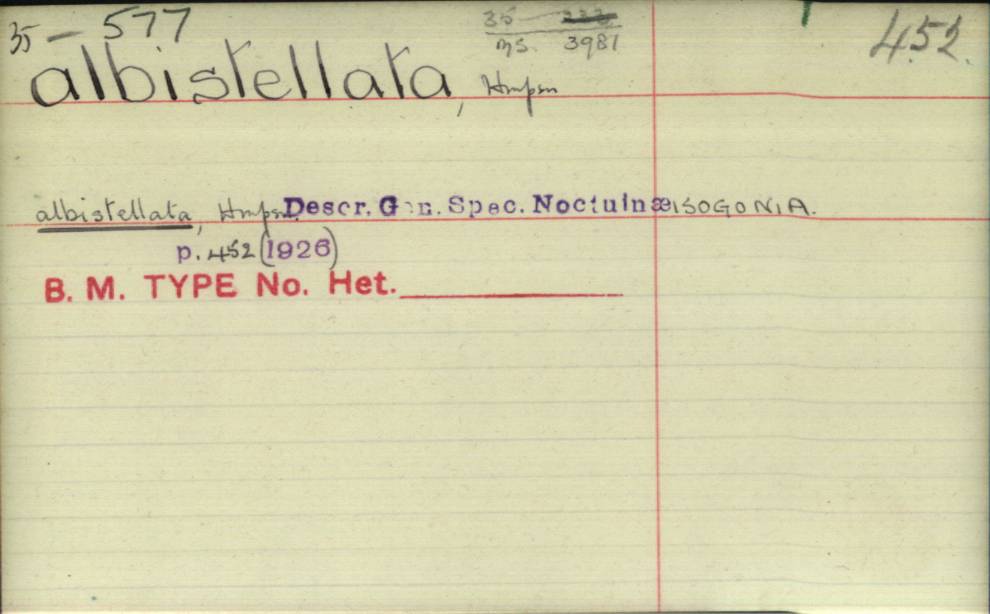 35 — 577
35
ms. 3981
452.
albistellata, Hmpsn
albistellata, Hmpsn. Descr. Gen. Spec. Noctuinæ ISOGONIA.
p. 452 (1926)
B. M. TYPE No. Het.